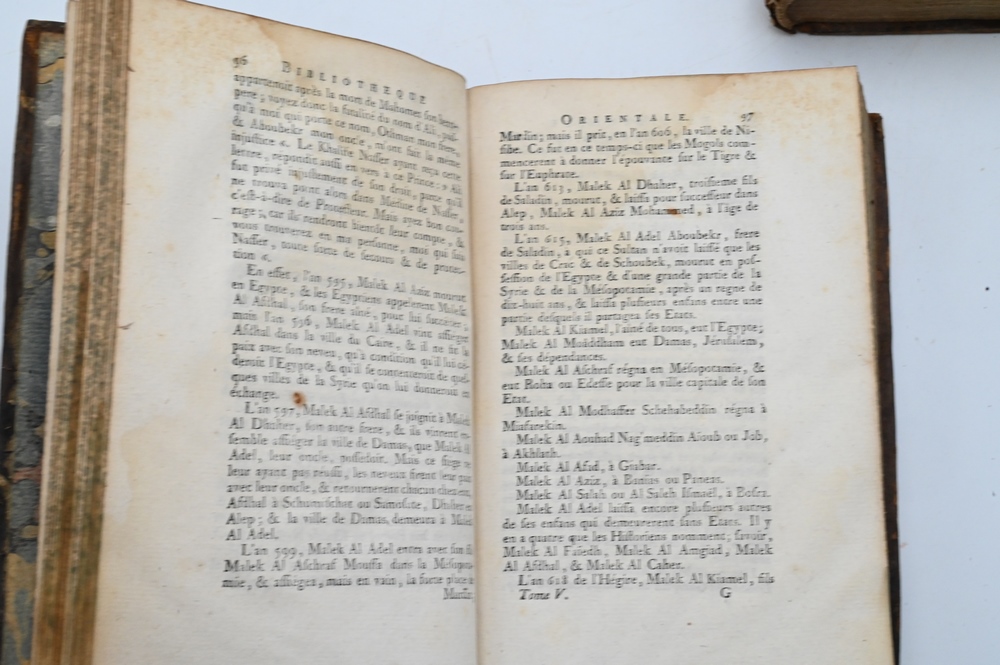 96 BIBLIOTHEQUE
appartenoit après la mort de Mahomet son beau-
pere; voyez donc la fatalité du nom d'Ali, puis-
qu'à moi qui porte ce nom, Othman mon frere,
& Aboubekr mon oncle, m'ont fait la même
injustice «. Le Khalife Nasser ayant reçu cette
lettre, répondit aussi en vers à ce Prince: » Ali
fut privé injustement de son droit, parce qu'il
ne trouva point alors dans Médine de Nasser,
c'est-à-dire de Protecteur. Mais ayez bon cou-
rage; car ils rendront bientôt leur compte, &
vous trouverez en ma personne, moi qui suis
Nasser, toute sorte de secours & de protec-
tion «.
En effet, l'an 595, Malek Al Aziz mourut
en Egypte, & les Egyptiens appelerent Malek
Al Afdhal, son frere aîné, pour lui succéder;
mais l'an 596, Malek Al Adel vint assiéger
Afdhal dans la ville du Caire, & il ne fit la
paix avec son neveu, qu'à condition qu'il lui cé-
deroit l'Egypte, & qu'il se contenteroit de quel-
ques villes de la Syrie qu'on lui donneroit en
échange.
L'an 597, Malek Al Afdhal se joignit à Malek
Al Dhaher, son autre frere, & ils vinrent en-
semble assiéger la ville de Damas, que Malek Al
Adel, leur oncle, possédoit. Mais ce siege ne
leur ayant pas réussi, les neveux firent leur paix
avec leur oncle, & retournerent chacun chez eux,
Afdhal à Schumischet ou Samosate, Dhaher en
Alep; & la ville de Damas demeura à Malek
Al Adel.
L'an 599, Malek Al Adel entra avec son fils
Malek Al Aschraf Moussa dans la Mésopota-
mie, & assiégea, mais en vain, la forte place de
Mardin;
ORIENTALE. 97
Mardin; mais il prit, en l'an 606, la ville de Ni-
sibe. Ce fut en ce temps-ci que les Mogols com-
mencerent à donner l'épouvante sur le Tigre &
sur l'Euphrate.
L'an 613, Malek Al Dhaher, troisieme fils
de Saladin, mourut, & laissa pour successeur dans
Alep, Malek Al Aziz Mohammed, à l'âge de
trois ans.
L'an 615, Malek Al Adel Aboubekr, frere
de Saladin, à qui ce Sultan n'avoit laissé que les
villes de Crac & de Schoubek, mourut en pos-
session de l'Egypte & d'une grande partie de la
Syrie & de la Mésopotamie, après un regne de
dix-huit ans, & laissa plusieurs enfans entre une
partie desquels il partagea ses Etats.
Malek Al Kiamel, l'aîné de tous, eut l'Egypte;
Malek Al Moáddham eut Damas, Jérusalem,
& ses dépendances.
Malek Al Aschraf régna en Mésopotamie, &
eut Roha ou Edesse pour la ville capitale de son
Etat.
Malek Al Modhaffer Schehabeddin régna à
Miafarekin.
Malek Al Aouhad Nag'meddin Aïoub ou Job,
à Akhlath.
Malek Al Afad, à Giabar.
Malek Al Aziz, à Banias ou Paneas.
Malek Al Salah ou Al Saleh Ismaël, à Bosra.
Malek Al Adel laissa encore plusieurs autres
de ses enfans qui demeurerent sans Etats. Il y
en a quatre que les Historiens nomment; savoir,
Malek Al Faïedh, Malek Al Amgiad, Malek
Al Afdhal, & Malek Al Caher.
L'an 618 de l'Hégire, Malek Al Kiamel, fils
Tome V. G